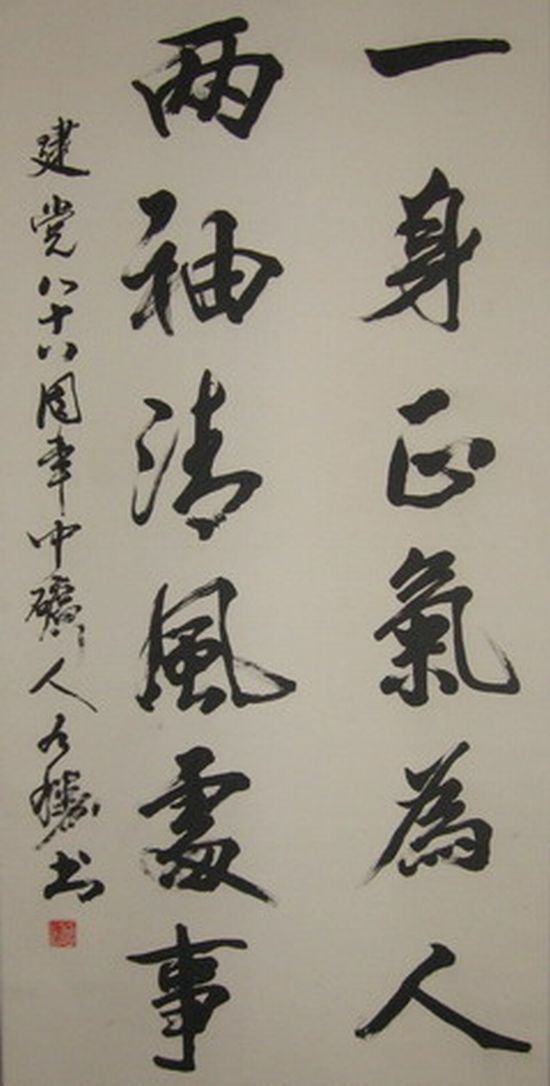 一身正氣為人
两袖清風處事
建党八十八周年中礦人 书